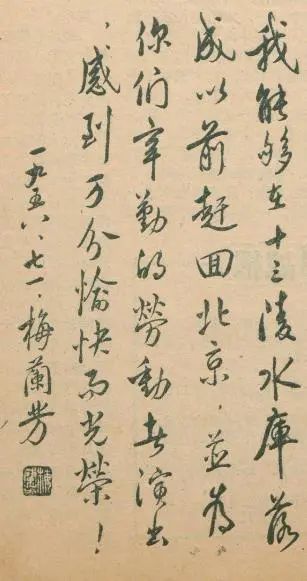 我能够在十三陵水庫落
成以前赶回北京，並为
你们辛勤的勞動者演出
，感到万分愉快而光榮！
一九五八、七一、梅蘭芳